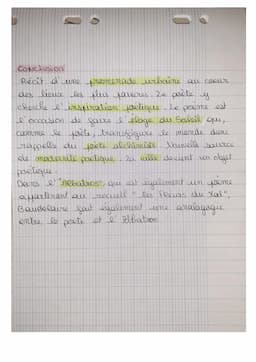 Conclusion
Récit d'une promenade urbaine au coeur
des lieux les plus pauvres. Le poète y
cherche l'inspiration poétique. Le poème est
l'occasion de faire l'éloge du Soleil qui,
comme le poète, transfigure le monde d'où
rappelle du poète alchimiste. Nouvelle source
de modernité poétique. La ville devient un objet
poétique.
Dans l'"Albatros" qui est également un poème
appartenant au recueil "les Fleurs du Mal",
Baudelaire fait également une analogie
entre le poète et l'Albatros